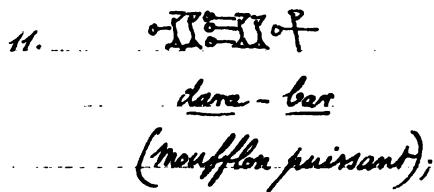 11.
dara - bar
(moufflon puissant);